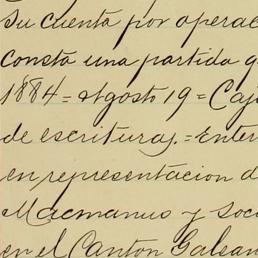 su cuenta por operac
consta una partida q
1884 = Agosto 19 = Caj
de escrituras. = Enter
en representacion d
Macmanus y Soci
en el Canton Galean